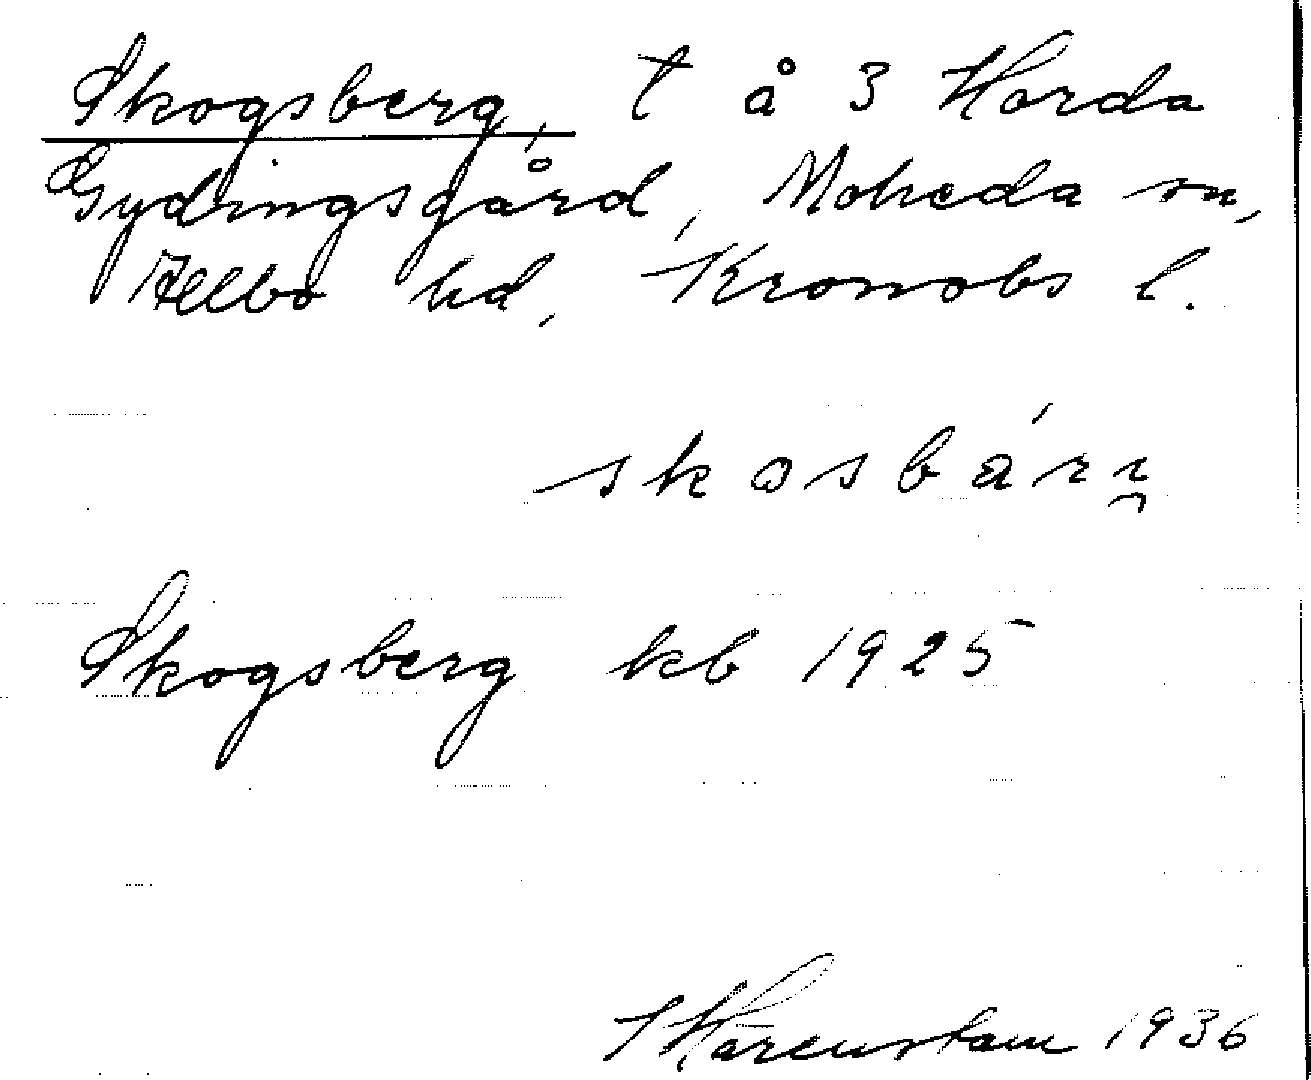 Skogsberg, t å 3 Horda
Gydingsgård, Moheda sn,
Allbo hd, Kronobs l.
skosbárı̯
Skogsberg kb 1925
Härenstam 1936